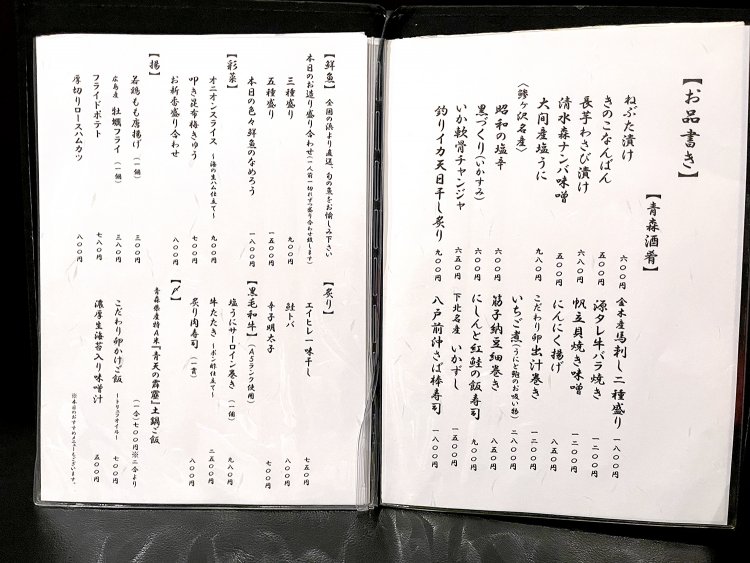 【お品書き】
【青森酒肴】
ねぶた漬け 六〇〇円
きのこなんばん 五五〇円
長芋わさび漬け 六〇〇円
清水森ナンバ味噌 五〇〇円
大間産塩うに 九八〇円
〈鰺ヶ沢名産〉
昭和の塩辛 六〇〇円
黒づくり(いかすみ) 六〇〇円
いか軟骨チャンジャ 六五〇円
釣りイカ天日干し炙り 九〇〇円
金木産馬刺し二種盛り 一八〇〇円
源タレ牛バラ焼き 一二〇〇円
帆立貝焼き味噌 一二〇〇円
にんにく揚げ 八五〇円
こだわり卵出汁巻き 一二〇〇円
いちご煮(うにと鮑のお吸い物) 二八〇〇円
筋子納豆細巻き 八五〇円
にしんと紅鮭の飯寿司 九〇〇円
下北名産 いかずし 一五〇〇円
八戸前沖さば棒寿司 一八〇〇円
【鮮魚】 全国の浜より直送、旬の魚をお愉しみ下さい
本日のお造り盛り合わせ(一人前一切れずつ盛り合わせ致します)
三種盛り 九〇〇円
五種盛り 一五〇〇円
本日の色々鮮魚のなめろう 一八〇〇円
【彩菜】
オニオンスライス ～海の生ハム仕立て～ 九〇〇円
叩き昆布梅きゅう 七〇〇円
お新香盛り合わせ 八〇〇円
【揚】
若鶏もも唐揚げ (一個) 三〇〇円
広島産 牡蠣フライ (一個) 三八〇円
フライドポテト 七八〇円
厚切りロースハムカツ 八〇〇円
【炙り】
エイヒレ一味干し 七五〇円
鮭トバ 八〇〇円
辛子明太子 七〇〇円
【黒毛和牛】(A5ランク使用)
塩うにサーロイン巻き (一個) 九八〇円
牛たたき ～ポン酢仕立て～ 二五〇〇円
炙り肉寿司 (一貫) 八〇〇円
【〆】
青森県産特A米『青天の霹靂』土鍋ご飯 (一合)七〇〇円※二合より
こだわり卵かけご飯 ～トリュフオイル～ 七〇〇円
濃厚生海苔入り味噌汁 五〇〇円
※本日のおすすめメニューもございます。